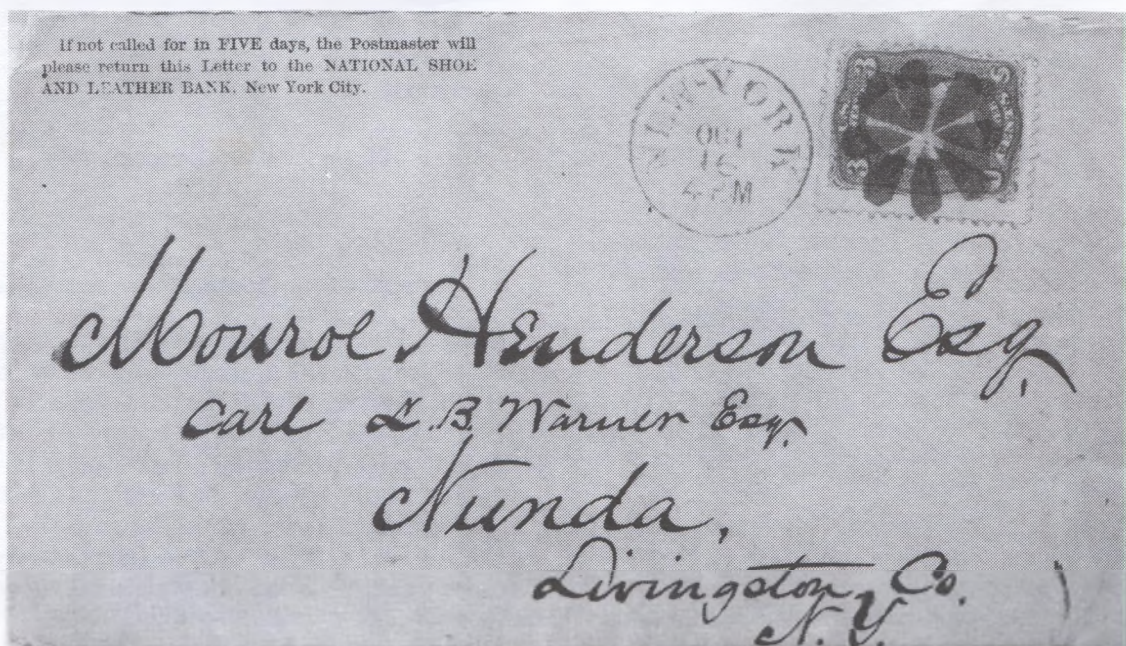 If not called for in FIVE days, the Postmaster will
please return this Letter to the NATIONAL SHOE
AND LEATHER BANK. New York City.
NEW-YORK
OCT
4 PM
3 3
CENTS
3
Monroe Henderson Esq.
Care L. B. Warner Esq.
Nunda,
Livingston, Co.
N.Y.